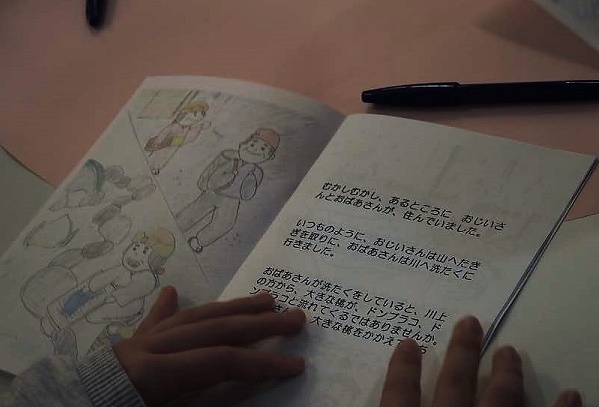 むかしむかし、あるところに　おじいさ
んとおばあさんが、住んでいました。
いつものように、おじいさんは山へたき
ぎを取りに、おばあさんは川へ洗たくに
行きました。
おばあさんが洗たくをしていると、川上
の方から、大きな桃が、ドンブラコ、ド
ンブラコと流れてくるではありませんか。
大きな桃をかかえて